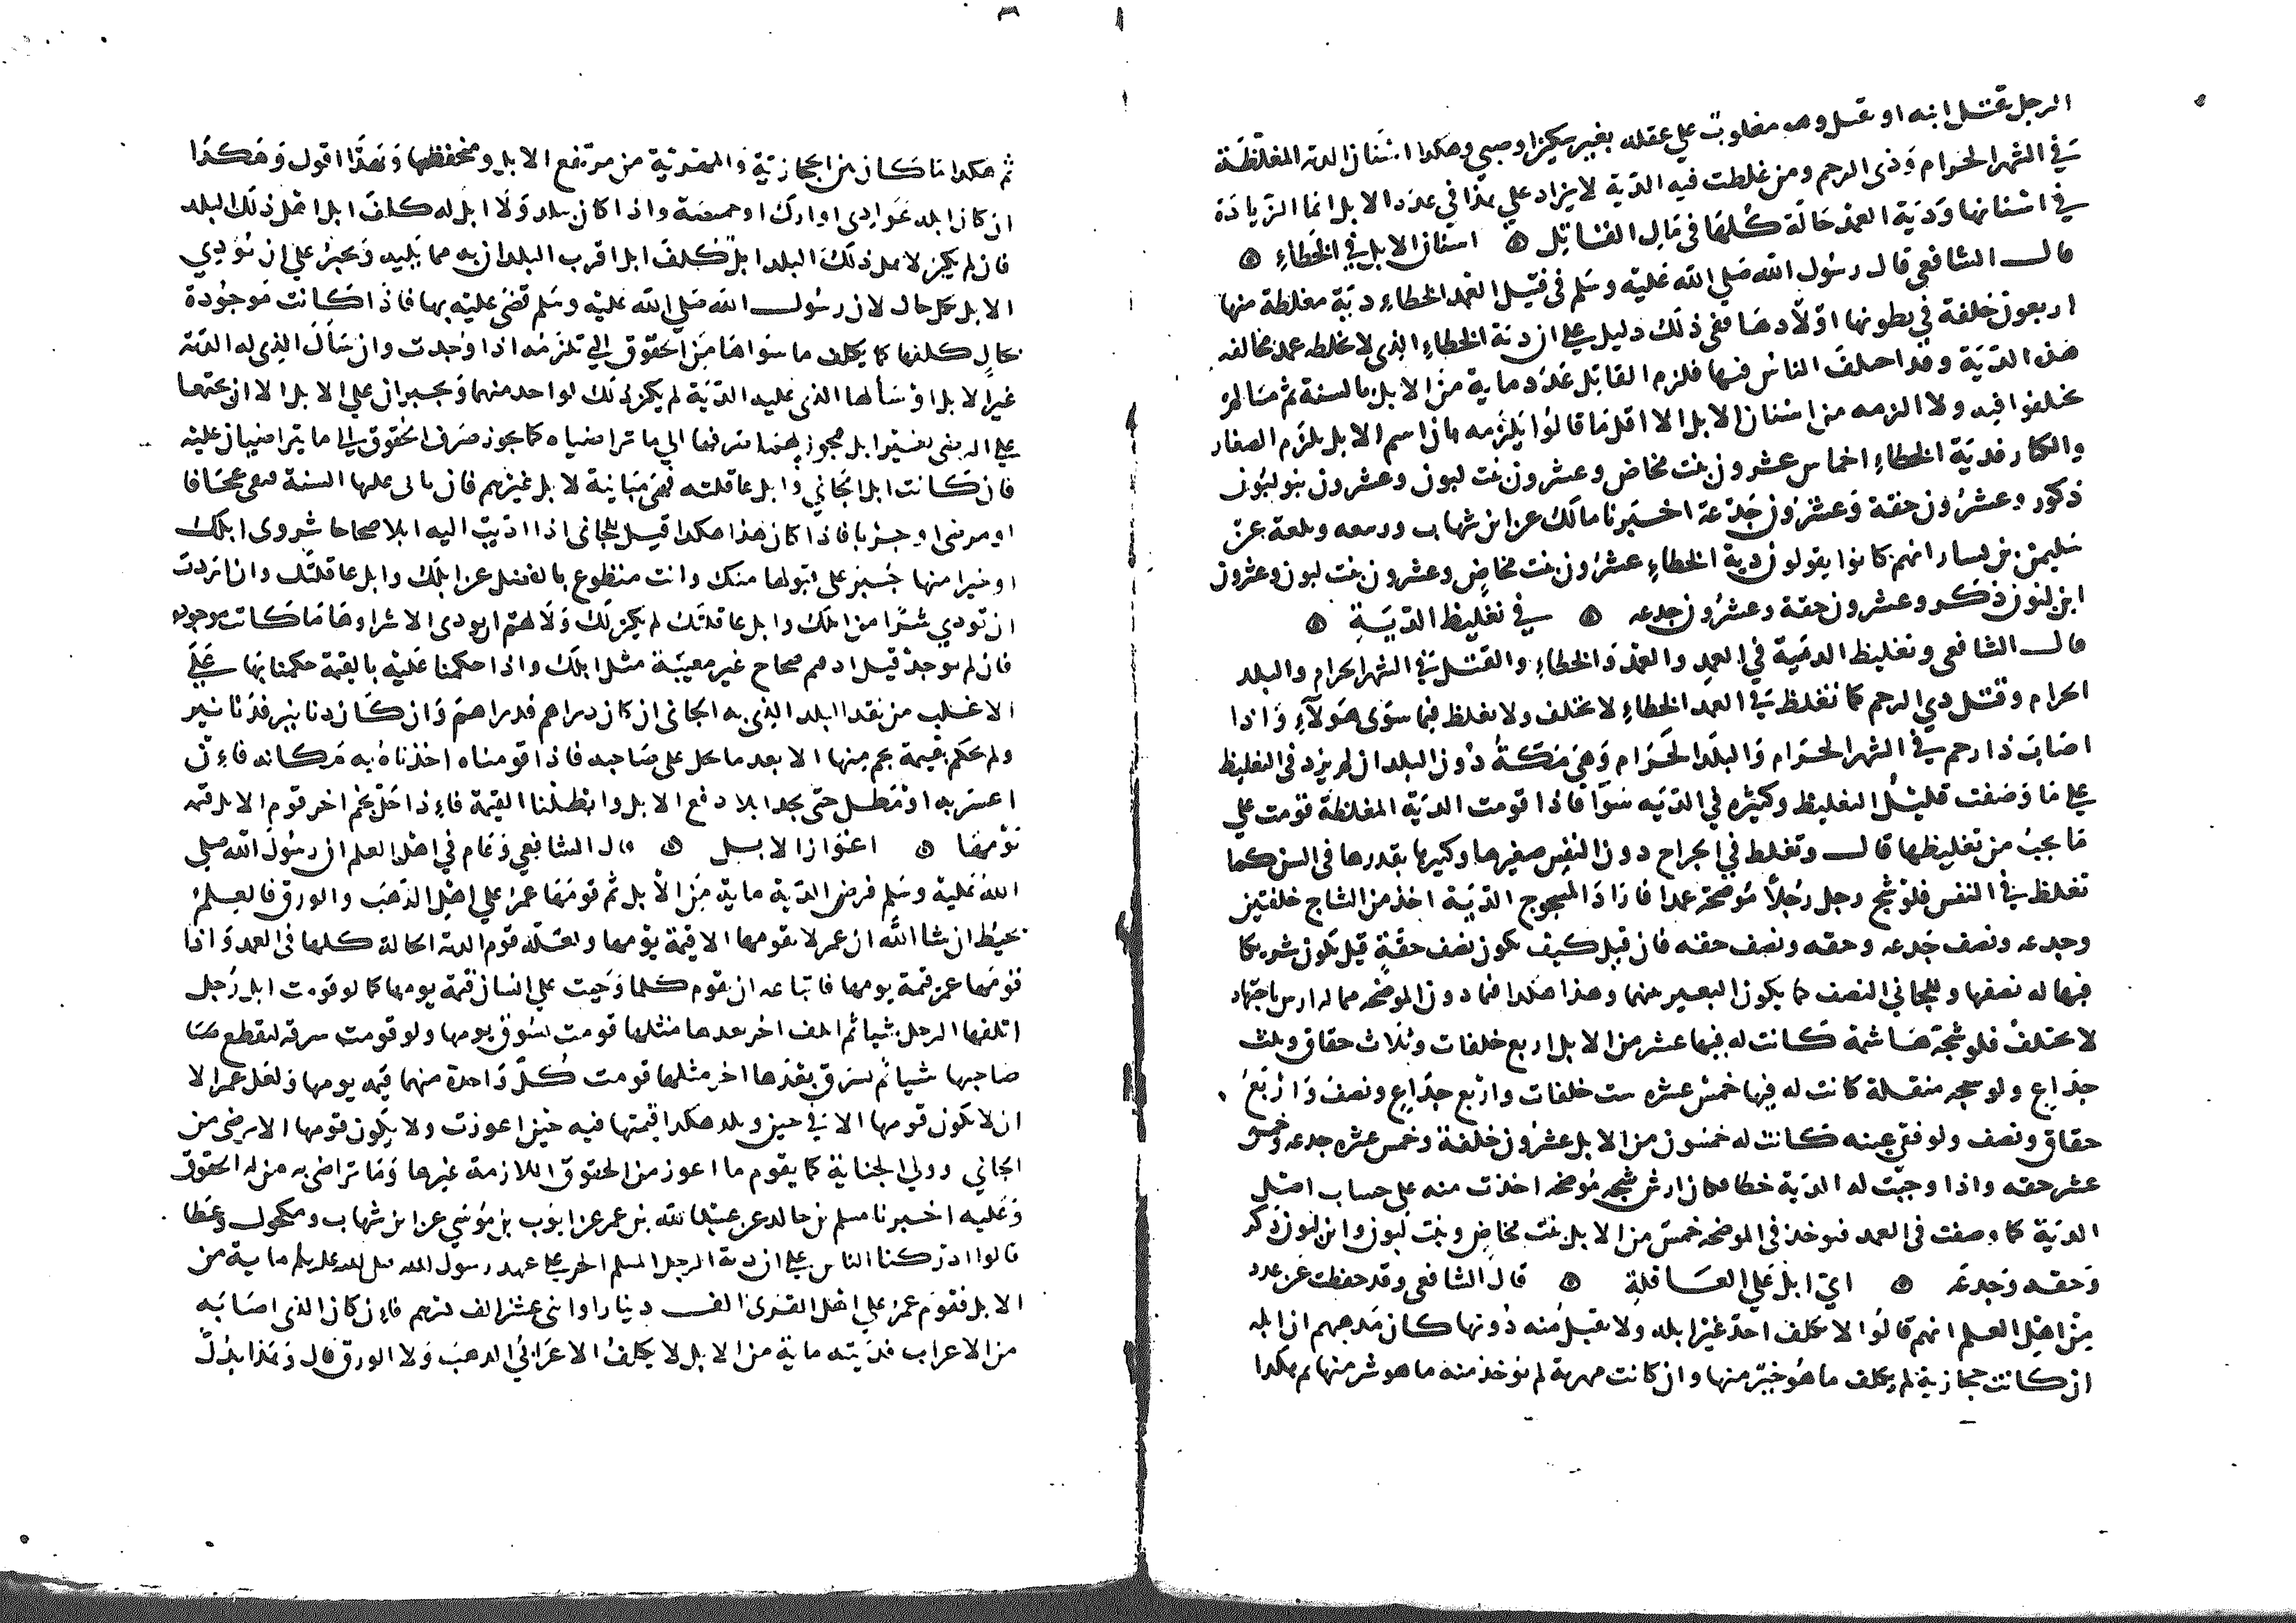 الرجل يقتل ابنه او يقتل وهو مغلوب على عقله بغير سكر او صبي وهكذا اسنان الدية المغلظة
في الشهر الحرام وذي الرحم ومن غلظت فيه الدية لا يزاد على هذا في عدد الابل انما الزيادة
في اسنانها ودية العمد حالة كلها في مال القاتل ۞ اسنان الابل في الخطاء ۞
قال الشافعي قال رسول الله صلى الله عليه وسلم في قتيل العمد الخطاء دية مغلظة منها
اربعون خلفة في بطونها اولادها ففي ذلك دليل على ان دية الخطاء الذي لا يخلطه عمد مخالفه
هذه الدية وقد اختلف الناس فيها فلزم القاتل عدد ماية من الابل بالسنة ثم مما لم
يختلفوا فيه ولا الزمه من اسنان الابل الا اقل ما قالوا يلزمه لان اسم الابل يلزم الصغار
والكبار فدية الخطاء اخماس عشرون بنت مخاض وعشرون بنت لبون وعشرون بنو لبون
ذكور وعشرون حقة وعشرون جذعة اخبرنا مالك عن ابن شهاب وربيعه وبلغه عن
سليمن بن يسار انهم كانوا يقولون دية الخطاء عشرون بنت مخاض وعشرون بنت لبون وعشرون
ابن لبون ذكر وعشرون حقة وعشرون جذعه ۞ في تغليظ الدية ۞
قال الشافعي وتغليظ الدية في العمد والعمد والخطاء والقتل في الشهر الحرام والبلد
الحرام وقتل ذي الرحم كما تغلظ في العمد الخطاء لا تختلف ولا تغلظ فيما سوى هولاء واذا
اصاب ذا رحم في الشهر الحرام والبلد الحرام وهي مكة دون البلدان لم يزد في التغليظ
على ما وصفت قليل التغليظ وكثيره في الديه سوا فاذا قومت الدية المغلظة قومت على
ما يجب من تغليظها قال وتغلظ في الجراح دون النفس صغيرها وكبيرها بقدرها في السن كما
تغلظ في النفس فلو شج رجل رجلا موضحة عمدا فاراد المشجوج الدية اخذ من الشاج خلفتين
وجذعه ونصف جذعه وحقه ونصف حقه فان قيل كيف يكون نصف حقة قيل يكون شريكا
فيها له نصفها وللجاني النصف كما يكون البعير بينهما وهذا هكذا فيما دون الموضحه مما له ارش باجتهاد
لا يختلف فلو شجه هاشمة كانت له فيها عشر من الابل اربع خلفات وثلاث حقاق وثلث
جذاع ولو شجه منقلة كانت له فيها خمس عشره ست خلفات واربع جذاع ونصف واربع
حقاق ونصف ولو فقي عينه كانت له خمسون من الابل عشرون خلفة وخمس عشره جذعه وخمس
عشر حقه واذا وجبت له الدية خطا فكان ارش شجه موضحه اخذت منه على حساب اصل
الدية كما وصفت في العمد فيوخذ في الموضحه خمس من الابل بنت مخاض وبنت لبون وابن لبون ذكر
وحقه وجذعه ۞ اي ابل على العاقلة ۞ قال الشافعي وقد حفظت عن عدد
من اهل العلم انهم قالوا لا يكلف احد غير ابله ولا يقبل منه دونها كان مذهبهم ان ابله
ان كانت حجازية لم يكلف ما هو خير منها وان كانت مهرية لم يوخذ منه ما هو شر منها ثم هكذا
ثم هكذا ما كان بين الحجازية والمهرية من مرتفع الابل ومنخفظها وبهذا اقول وهكذا
ان كان ابله عوادي او اوارك او حمضية واذا كان ببلد ولا ابل له كلف ابل اهل ذلك البلد
فان لم يكن لاهل ذلك البلد ابل كلف ابل اقرب البلدان به مما يليه ويجبر على ان يودي
الابل بكل حال لان رسول الله صلى الله عليه وسلم قضى عليه بها فاذا كانت موجودة
بحال كلفها كما يكلف ما سواها من الحقوق التي تلزمه اذا وجدت وان سال الذي له الديه
غير الابل او سالها الذي عليه الدية لم يكن ذلك لواحد منهما ويجبران على الابل الا ان يجتمعا
على الرضى بغير ابل فيجوز لهما صرفها الى ما تراضياه كما يجوز صرف الحقوق الى ما يتراضيان عليه
فان كانت ابل الجاني وابل عاقلته فهي مباينة لابل غيرهم فان اتى عليها السنة فهي عجافا
او مرضى او جربا فاذا كان هذا هكذا قيل للجاني اذا اديت اليه ابلا صحاحا شروى ابلك
او خيرا منها جبر على قبولها منك وانت متطوع بالفضل عن ابلك وابل عاقلتك وان اردت
ان تودي شرا من ابلك وابل عاقلتك لم يكن لك ولا لهم ان يودى الا شراوها ما كانت موجوده
فان لم توجد قيل ادهم صحاح غير معيبة مثل ابلك واذا حكمنا عليه بالقيمة حكمنا بها على
الاغلب من نقد البلد الذي به الجاني ان كان دراهم فدراهم وان كان دنانير فدنانير
ولم نحكم بقيمة نجم منها الا بعد ما يحل على صاحبه فاذا قومناه اخذناه به مكانه فاءن
اعسر به او مطل حتى يجد ابلا دفع الابل وابطلنا القيمة فاءذا حل نجم اخر قوم الابل قيمة
يومها ۞ اعواز الابل ۞ قال الشافعي وعام في اهل العلم ان رسول الله صلى
الله عليه وسلم فرض الدية ماية من الابل ثم قومها عمر على اهل الذهب والورق فالعلم
يحيط ان شا الله ان عمر لا يقومها الا قيمة يومها ولعله قوم الدية الحالة كلها في العمد واذا
قومها عمر قيمة يومها فاتباعه ان تقوم كلما وجبت على انسان قيمة يومها كما لو قومت ابل رجل
اتلفها الرجل شيا ثم اتلف اخر بعدها مثلها قومت بسوق يومها ولو قومت سرقه ليقطع
صاحبها شيا ثم سرق بعدها اخر مثلها قومت كل واحدة منهما قيمه يومها ولعل عمر الا
ان لا تكون قومها الا في حين وبلد هكذا قيمتها فيه حين اعوزت ولا يكون قومها الا برضى من
الجاني وولي الجناية كما يقوم ما اعوز من الحقوق اللازمة غيرها وما تراضى به من له الحقوق
وعليه اخبرنا مسلم بن خالد عن عبيد الله بن عمر عن ايوب بن موسي عن ابن شهاب ومكحول وعطا
قالوا ادركنا الناس على ان دية الرجل المسلم الحر على عهد رسول الله صلى الله عليه وسلم ماية من
الابل فقوم عمر على اهل القرى الف دينار او اثنى عشر الف درهم فاءن كان الذي اصابه
من الاعراب فديته ماية من الابل لا يكلف الاعرابي الذهب ولا الورق قال وهذا يدل